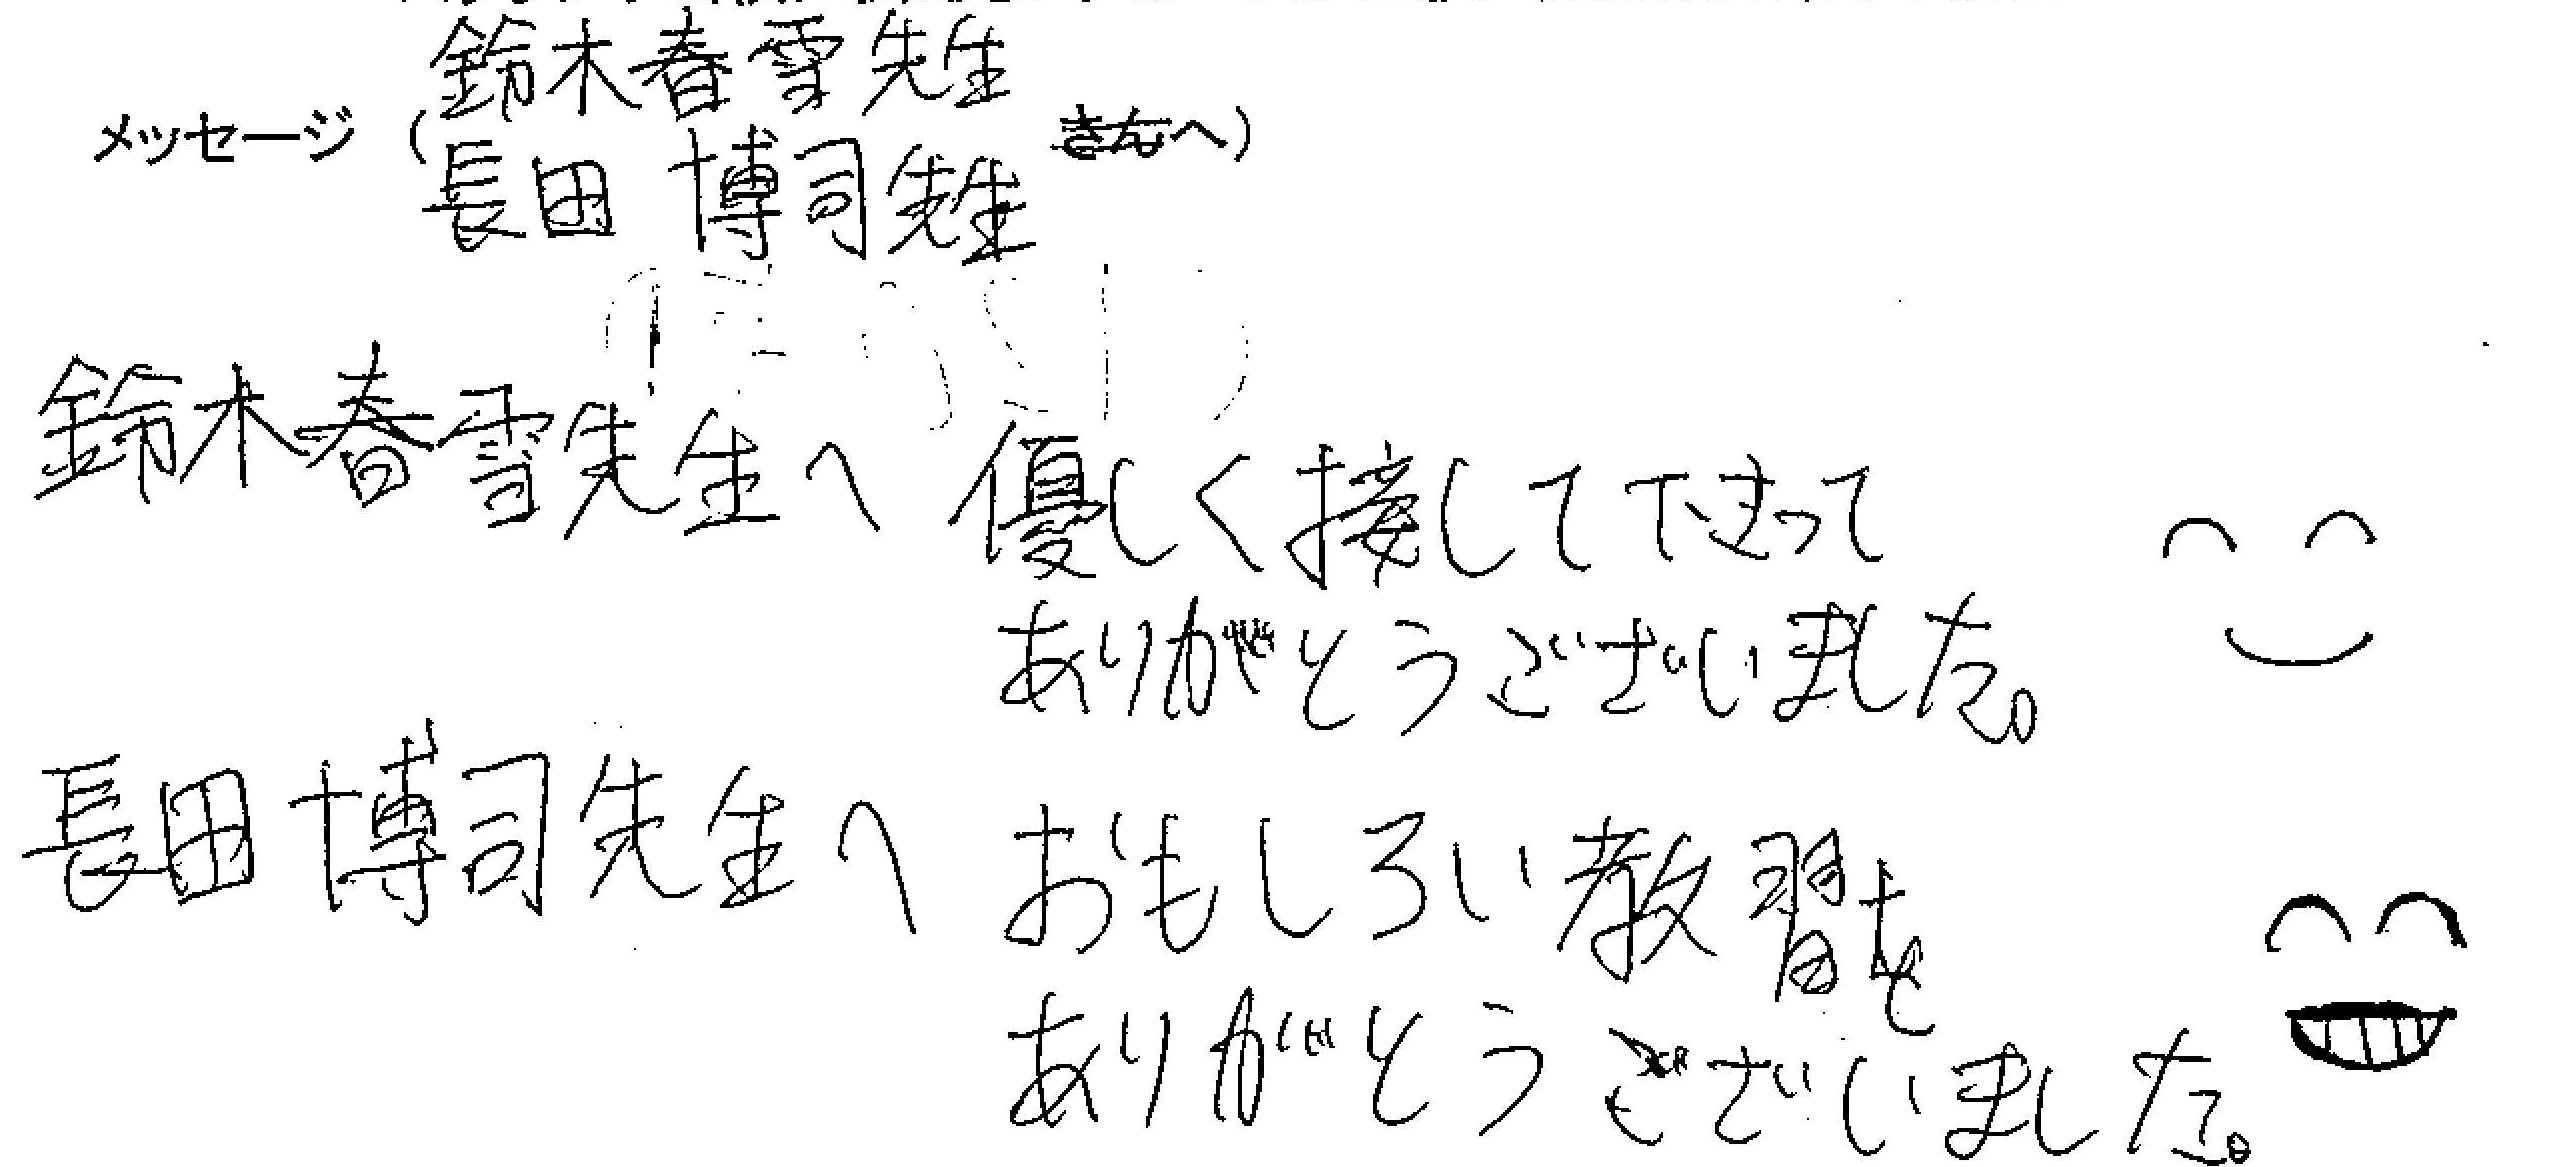 鈴木春雪先生
メッセージ（　　　さんへ）
長田 博司先生
鈴木春雪先生へ 優しく接して下さって
ありがとうございました。
長田 博司先生へ おもしろい教習を
ありがとうございました。